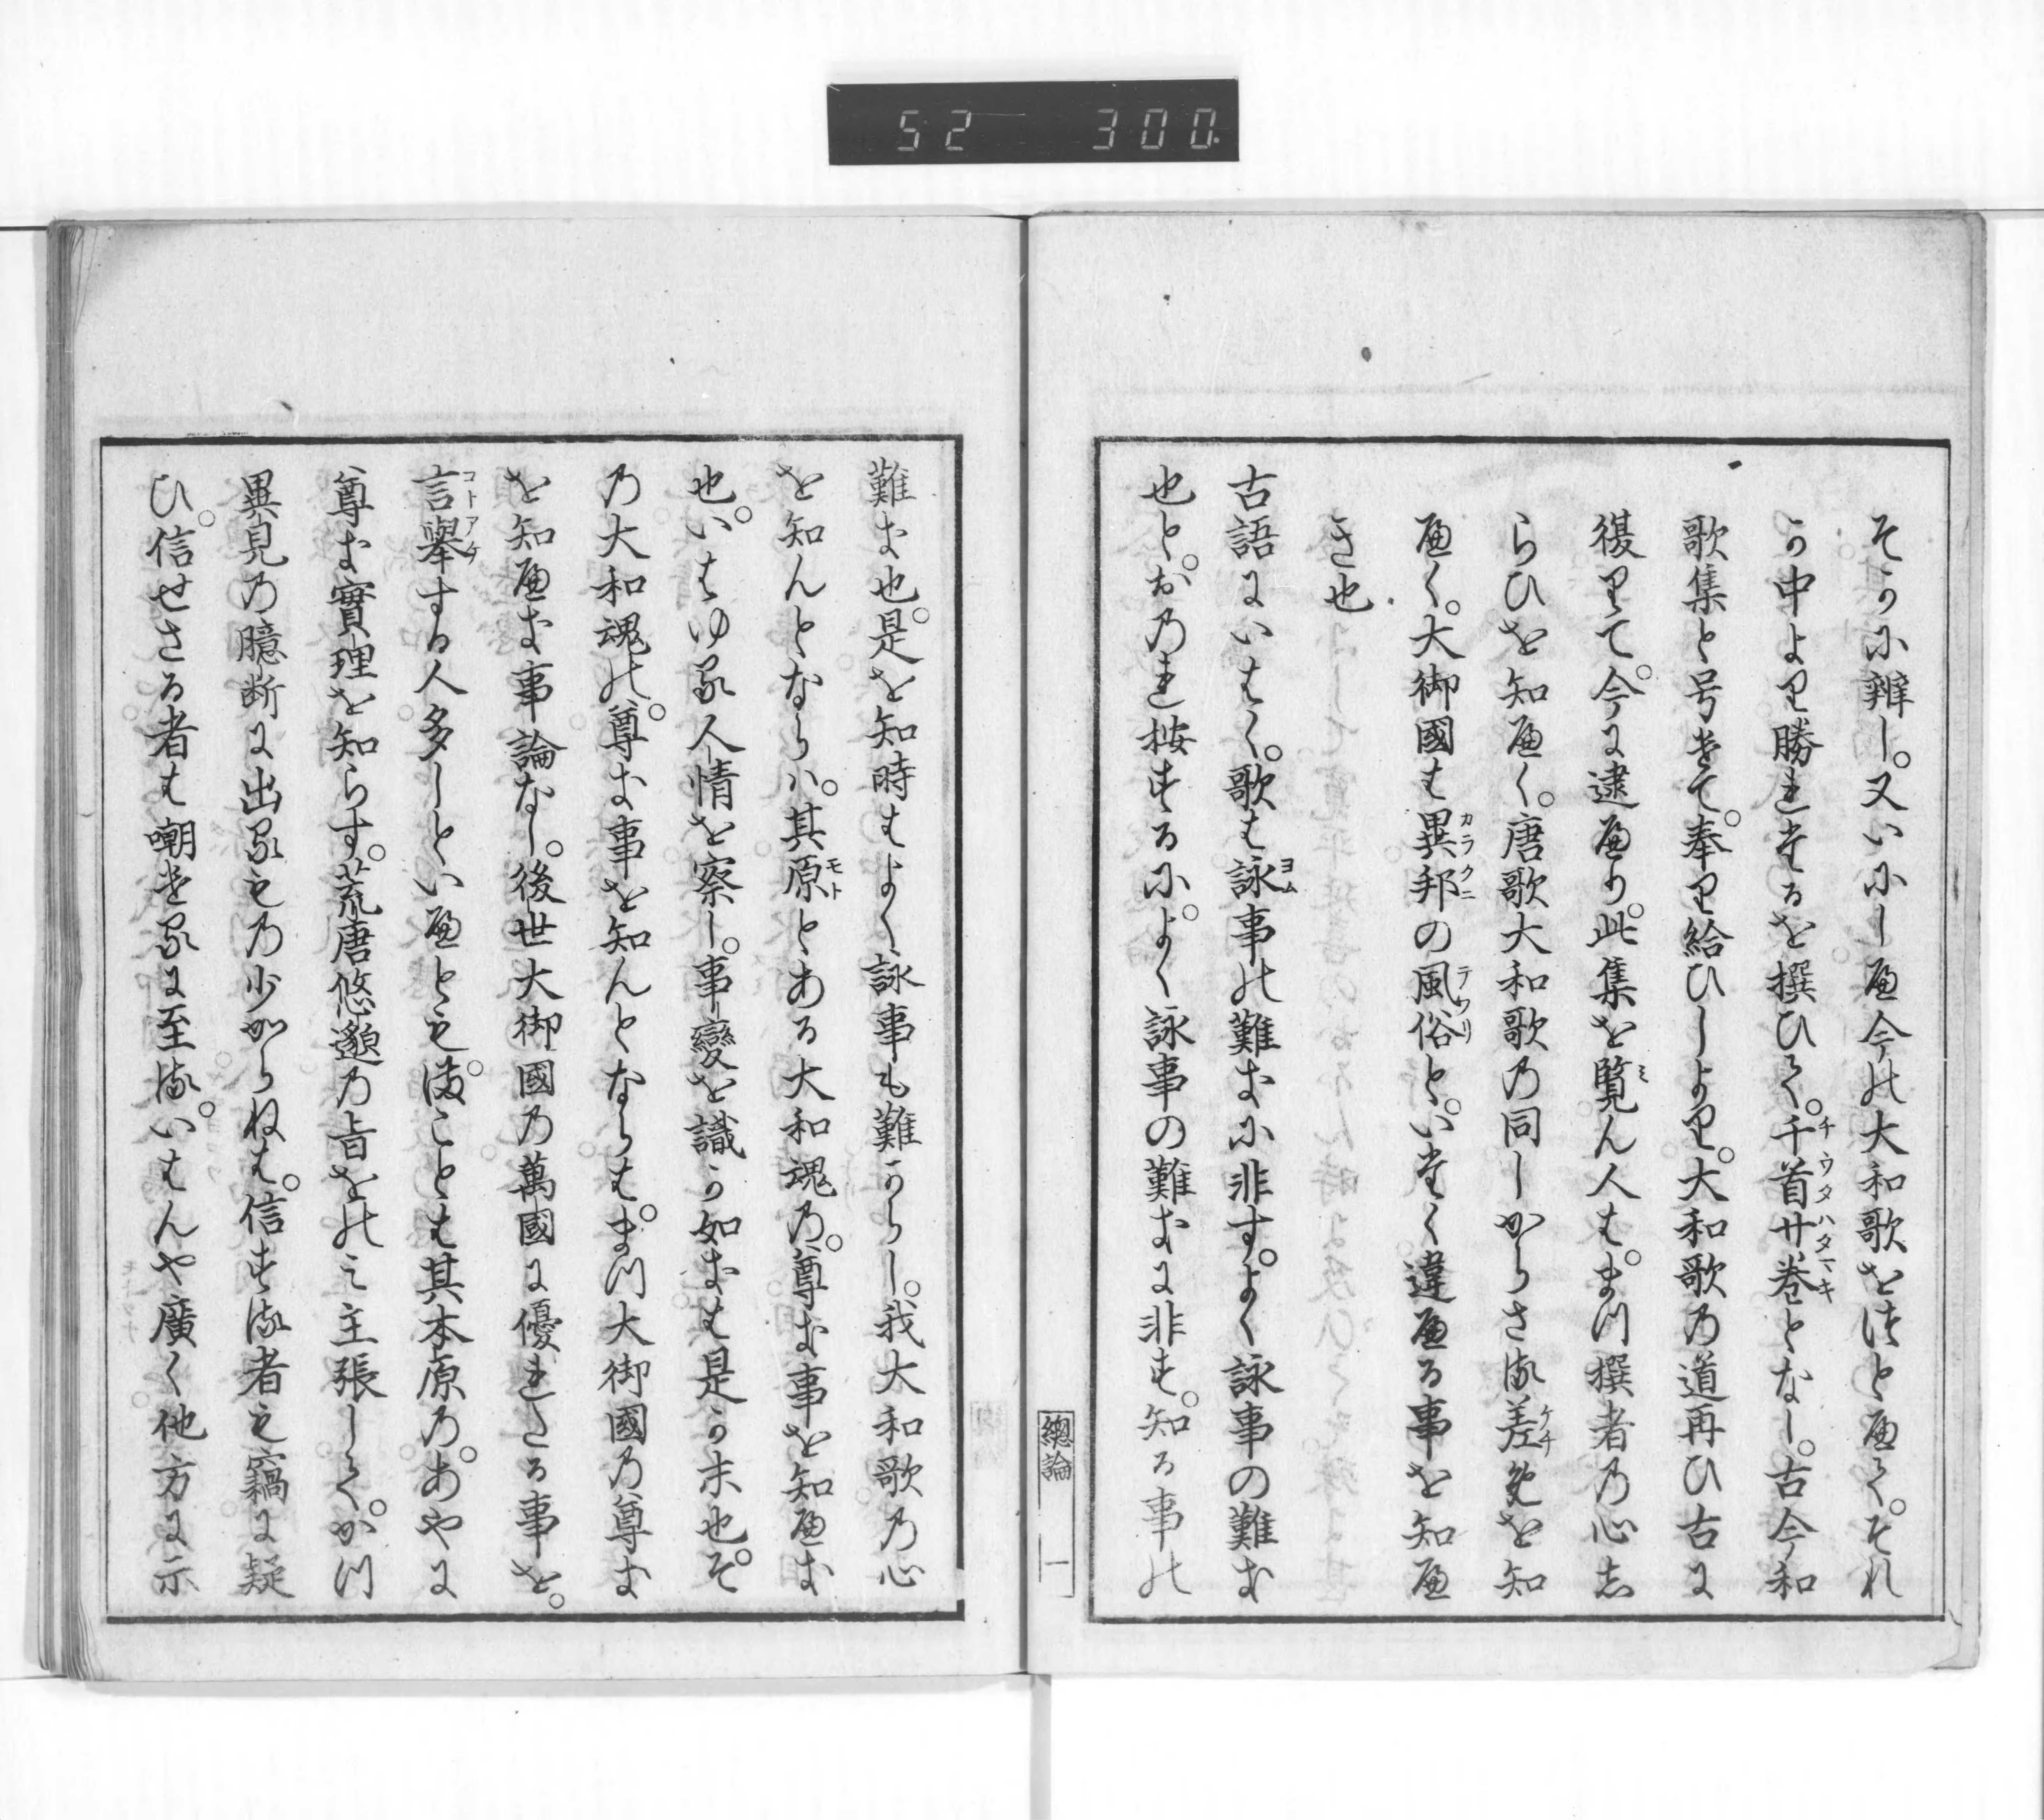 52 300.
そかに辨し。又いにしへ今の大和歌をつとへて。それ
か中より勝れたるを撰ひて。千首廿巻となし。古今和
歌集と号けて。奉り給ひしより。大和歌の道再ひ古に
復りて。今に逮へり。此集を覧ん人は。まつ撰者の心志
らひを知へく。唐歌大和歌の同しからさる差免を知
へく。大御國は異邦の風俗と。いたく違へる事を知へ
き也
古語にいはく。歌は詠事の難きに非す。よく詠事の難き
也と。おのれ按するに。よく詠事の難きに非す。知る事の
總論 一
難き也。是を知時はよく詠事も難からし。我大和歌の心
を知んとならハ。其原とある大和魂の。尊き事を知へき
也。いはゆる人情を察し。事變を識か如きは是か末也。そ
の大和魂の。尊き事を知んとならは。まつ大御國の尊き
を知へき事論なし。後世大御國の萬國に優れたる事を。
言擧する人多しといへとも。まことは其本原の。あやに
尊き實理を知らす。荒唐悠邈の旨をのミ主張して。かつ
異見の臆断に出るもの少からねは。信する者も竊に疑
ひ。信せさる者は嘲けるに至る。いはんや廣く他方に示